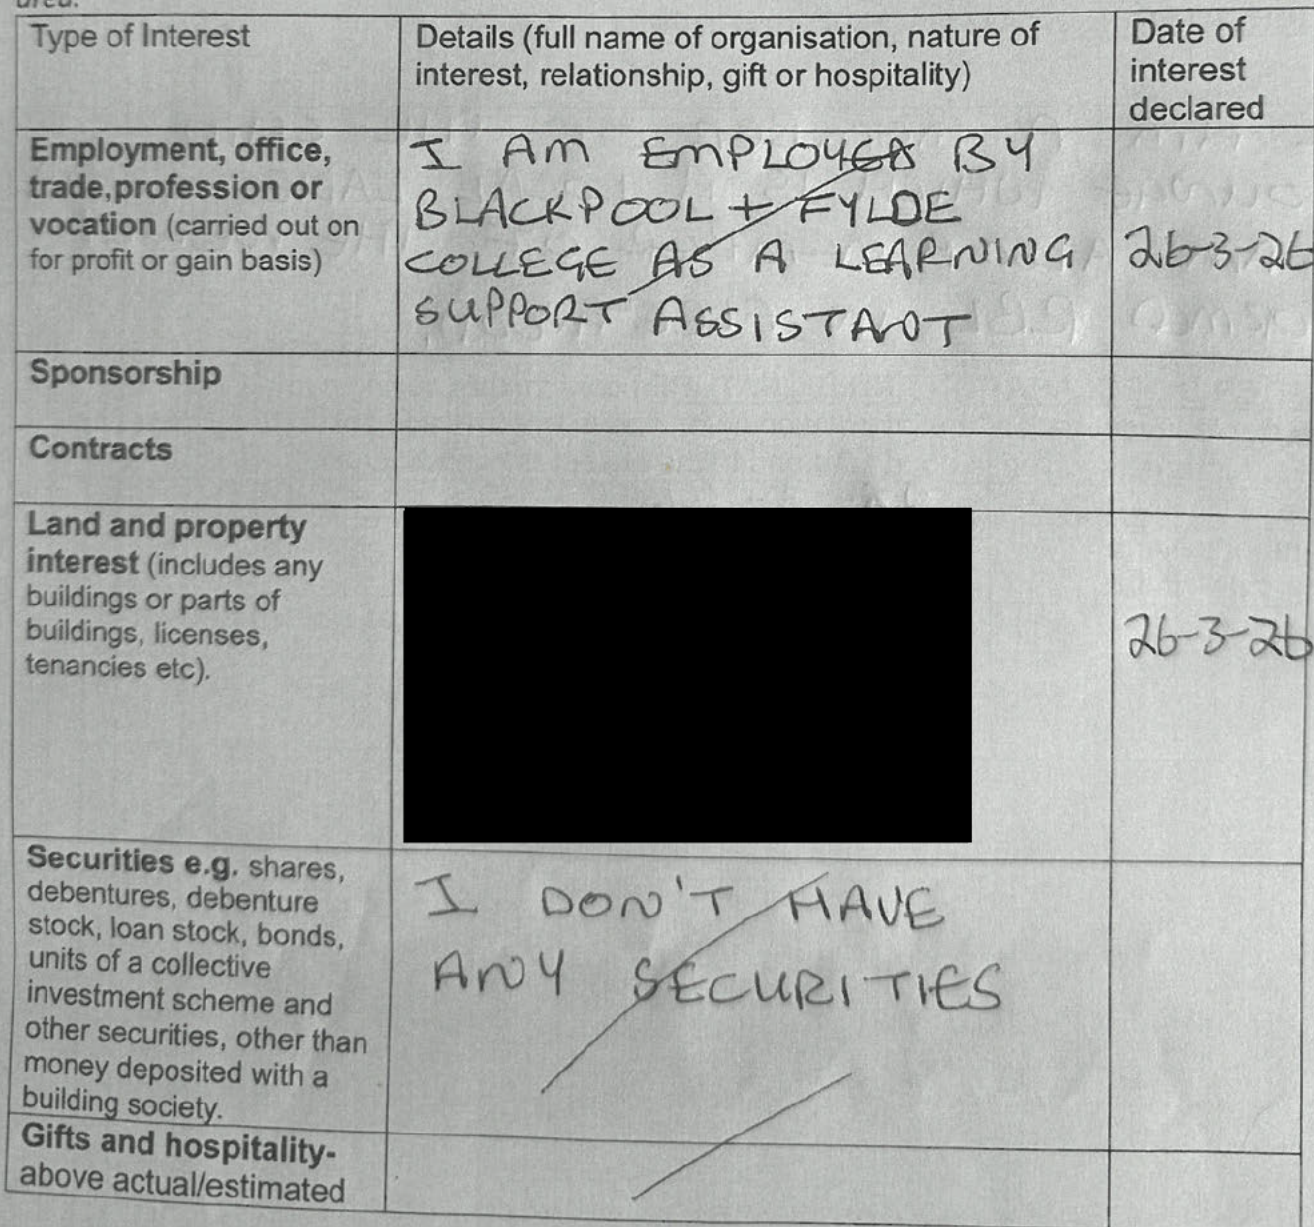 Type of Interest
Details (full name of organisation, nature of
interest, relationship, gift or hospitality)
Date of
interest
declared
Employment, office,
trade,profession or
vocation (carried out on
for profit or gain basis)
I AM EMPLOYED BY
BLACKPOOL + FYLDE
COLLEGE AS A LEARNING
SUPPORT ASSISTANT
26-3-26
Sponsorship
Contracts
Land and property
interest (includes any
buildings or parts of
buildings, licenses,
tenancies etc).
26-3-26
Securities e.g. shares,
debentures, debenture
stock, loan stock, bonds,
units of a collective
investment scheme and
other securities, other than
money deposited with a
building society.
I DON'T HAVE
ANY SECURITIES
Gifts and hospitality-
above actual/estimated